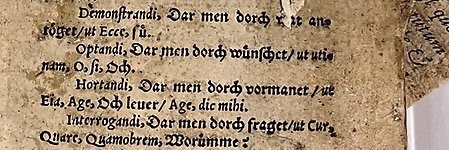 Demonstrandi, Dar men dorch an-
töget/ut Ecce, sü.
Optandi, Dar men dorch wünschet/ut uti-
nam, O, si, Och.
Hortandi, Dar men dorch vormanet/ut
Eia, Age, Och leuer/ Age, dic mihi.
Interrogandi, Dar men dorch fraget/ut Cur,
Quare, Quamobrem, Worümme?